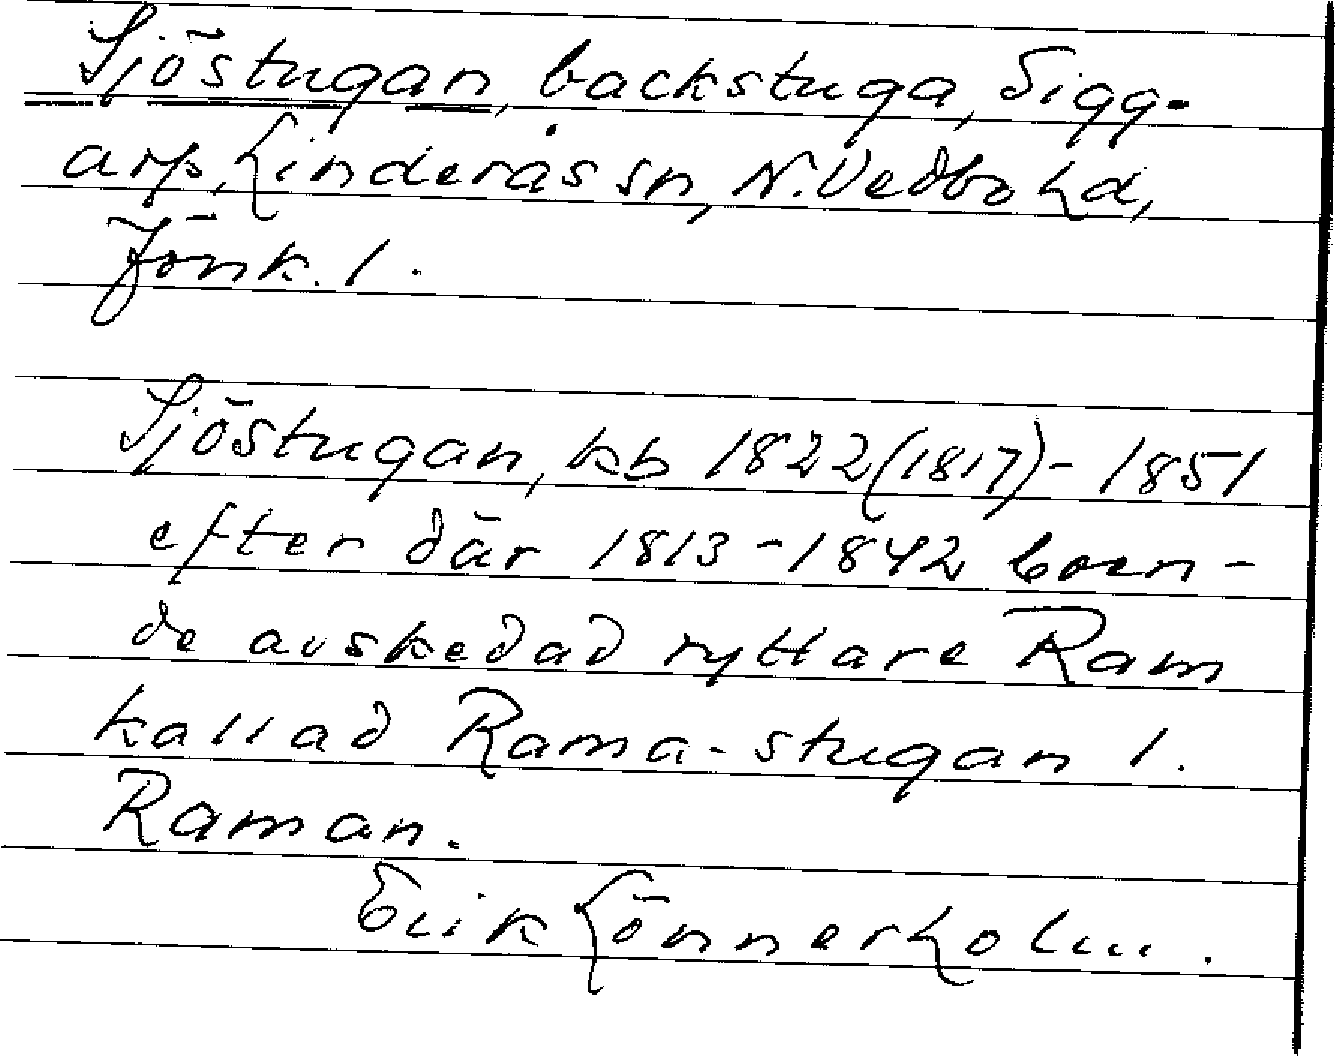 Sjöstugan, backstuga, Sigg-
arp, Linderås sn, N. Vedbo hd,
Jönk. l.
Sjöstugan, kb 1822(1817)-1851
efter där 1813-1842 boen-
de avskedad ryttare Ram
kallad Rama-stugan l.
Raman.
Erik Lönnerholm.